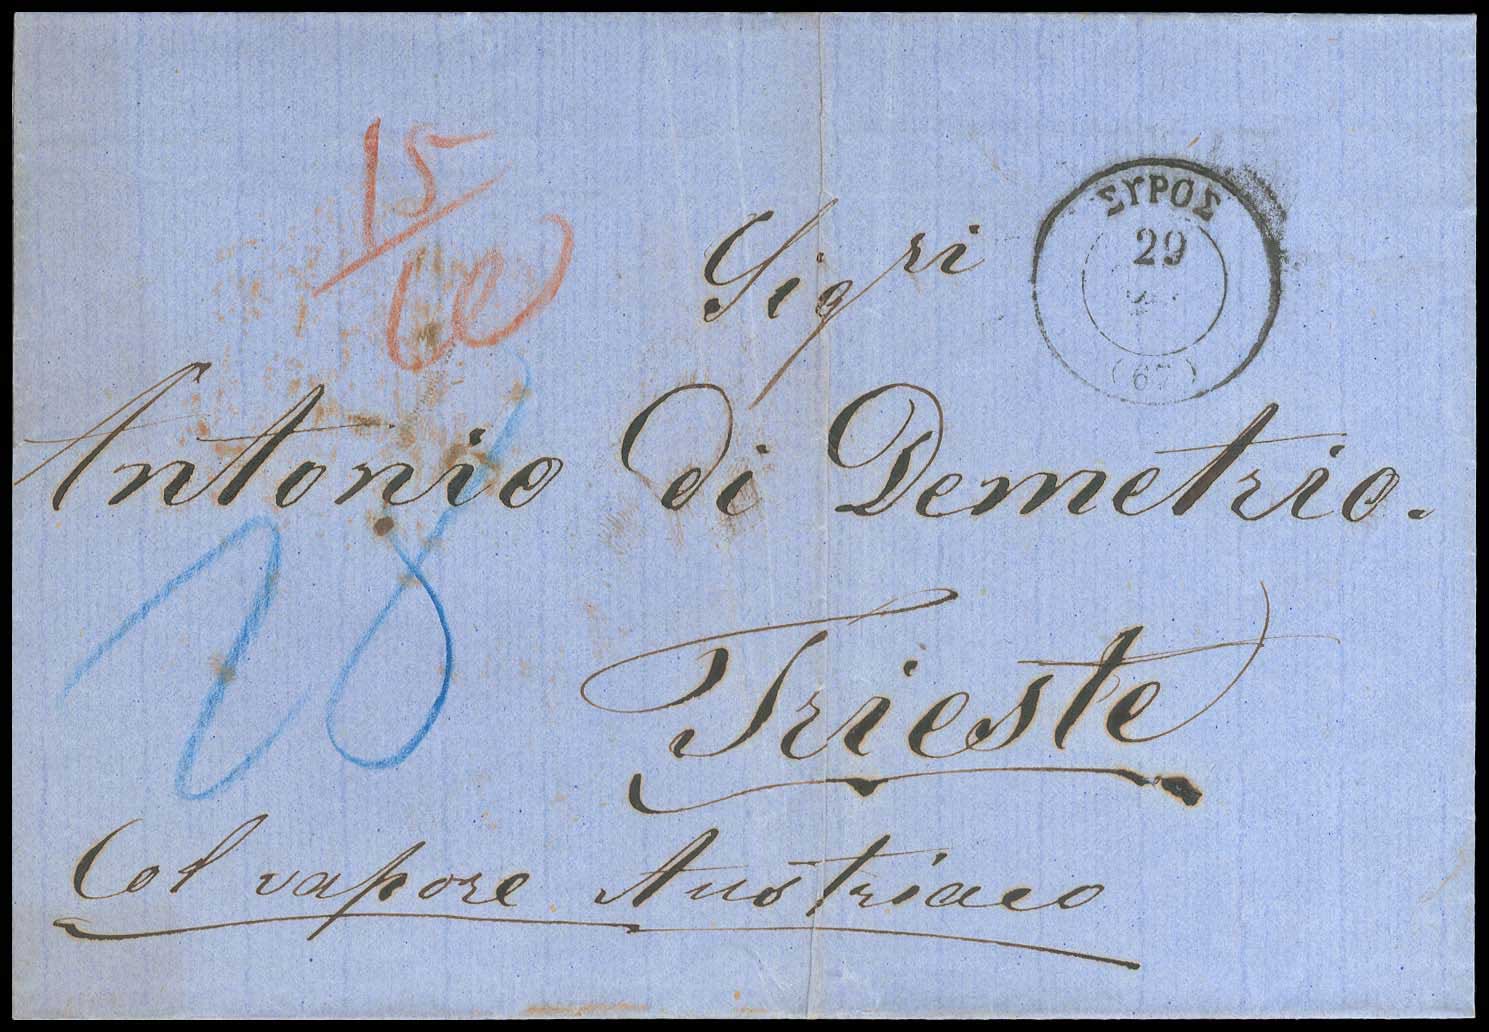 15
ΣΥΡΟΣ
29
(67)
Sigri
Antonio di Demetrio.
28
Trieste
Col vapore Austriaco